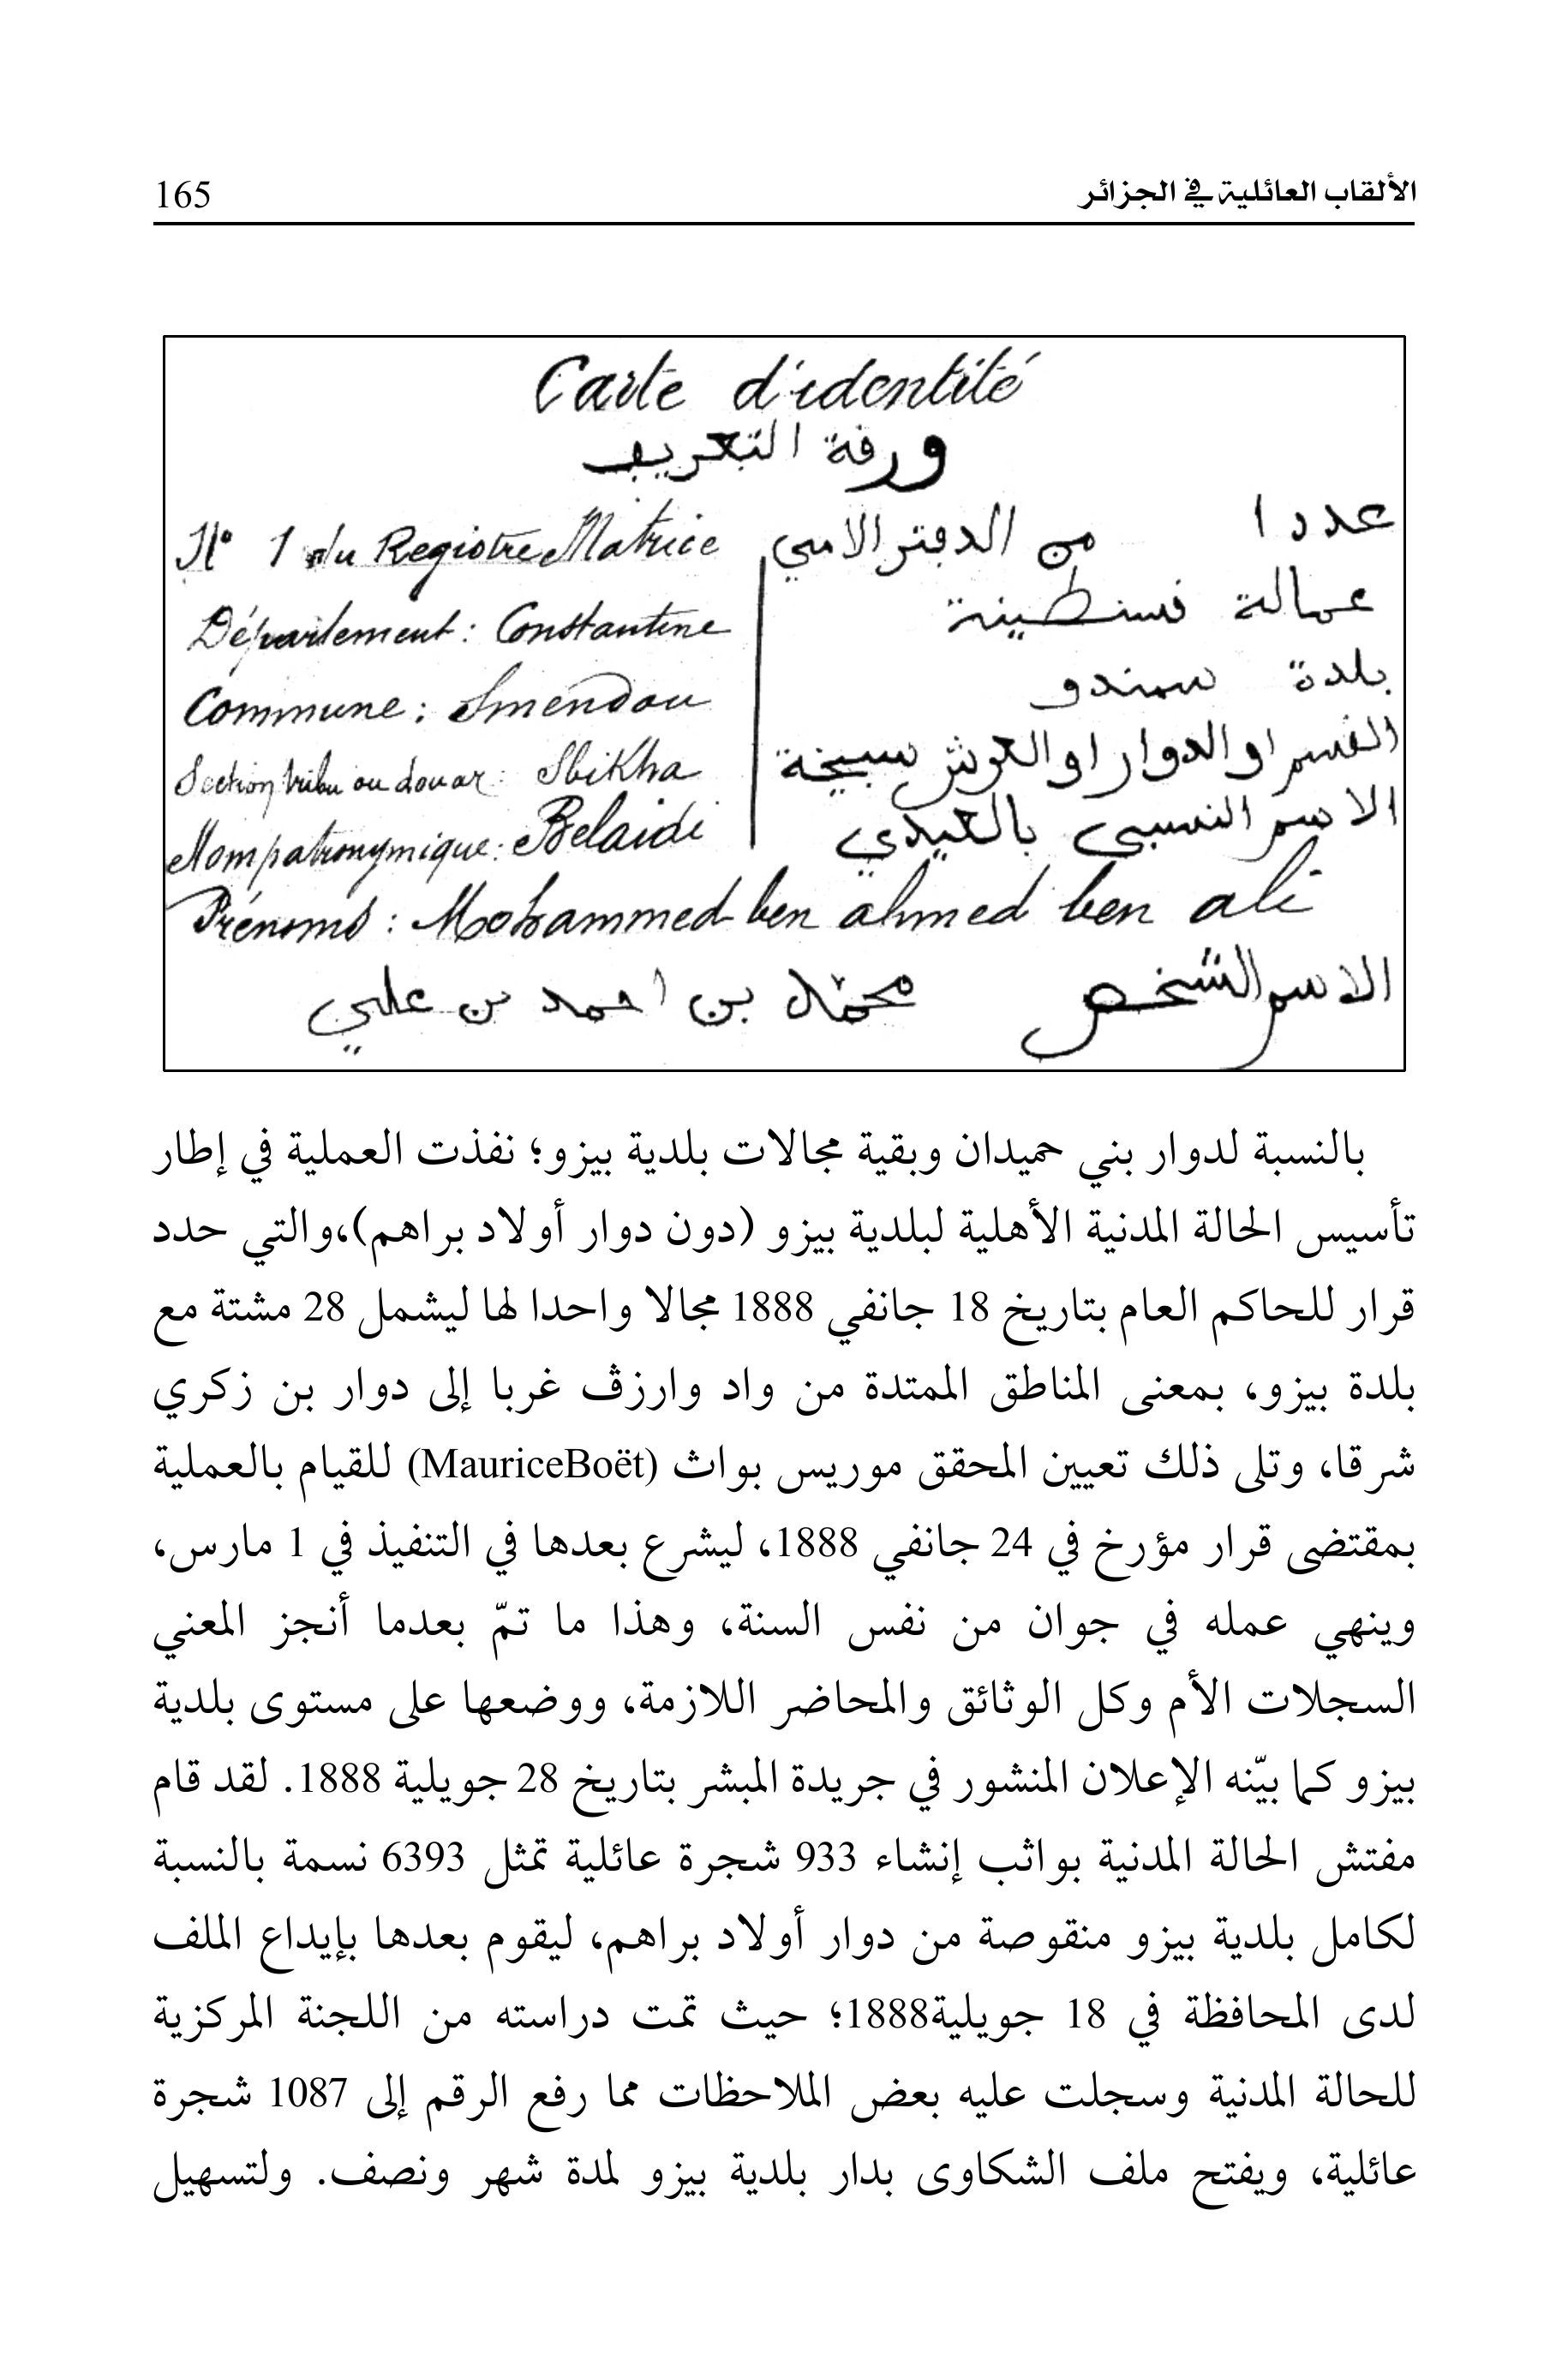 الألقاب العائلية في الجزائر 165
Carte d'identité
ورفة التعريف
N° 1 du Registre Matrice
عدد ١ من الدفتر الامي
Département: Constantine
عمالة فسنطينة
Commune: Smendou
بلدة سمندو
Section tribu ou douar: Sbikha
الفسم او الدوار او العرش سبيخة
Nom patronymique: Belaidi
الاسم النسبي بالعيدي
Prénoms: Mohammed ben ahmed ben ali
الاسم الشخص محمّد بن احمد بن علي
بالنسبة لدوار بني حميدان وبقية مجالات بلدية بيزو؛ نفذت العملية في إطار
تأسيس الحالة المدنية الأهلية لبلدية بيزو (دون دوار أولاد براهم)،والتي حدد
قرار للحاكم العام بتاريخ 18 جانفي 1888 مجالا واحدا لها ليشمل 28 مشتة مع
بلدة بيزو، بمعنى المناطق الممتدة من واد وارزڤ غربا إلى دوار بن زكري
شرقا، وتلى ذلك تعيين المحقق موريس بواث (MauriceBoët) للقيام بالعملية
بمقتضى قرار مؤرخ في 24 جانفي 1888، ليشرع بعدها في التنفيذ في 1 مارس،
وينهي عمله في جوان من نفس السنة، وهذا ما تمّ بعدما أنجز المعني
السجلات الأم وكل الوثائق والمحاضر اللازمة، ووضعها على مستوى بلدية
بيزو كما بيّنه الإعلان المنشور في جريدة المبشر بتاريخ 28 جويلية 1888. لقد قام
مفتش الحالة المدنية بواثب إنشاء 933 شجرة عائلية تمثل 6393 نسمة بالنسبة
لكامل بلدية بيزو منقوصة من دوار أولاد براهم، ليقوم بعدها بإيداع الملف
لدى المحافظة في 18 جويلية1888؛ حيث تمت دراسته من اللجنة المركزية
للحالة المدنية وسجلت عليه بعض الملاحظات مما رفع الرقم إلى 1087 شجرة
عائلية، ويفتح ملف الشكاوى بدار بلدية بيزو لمدة شهر ونصف. ولتسهيل